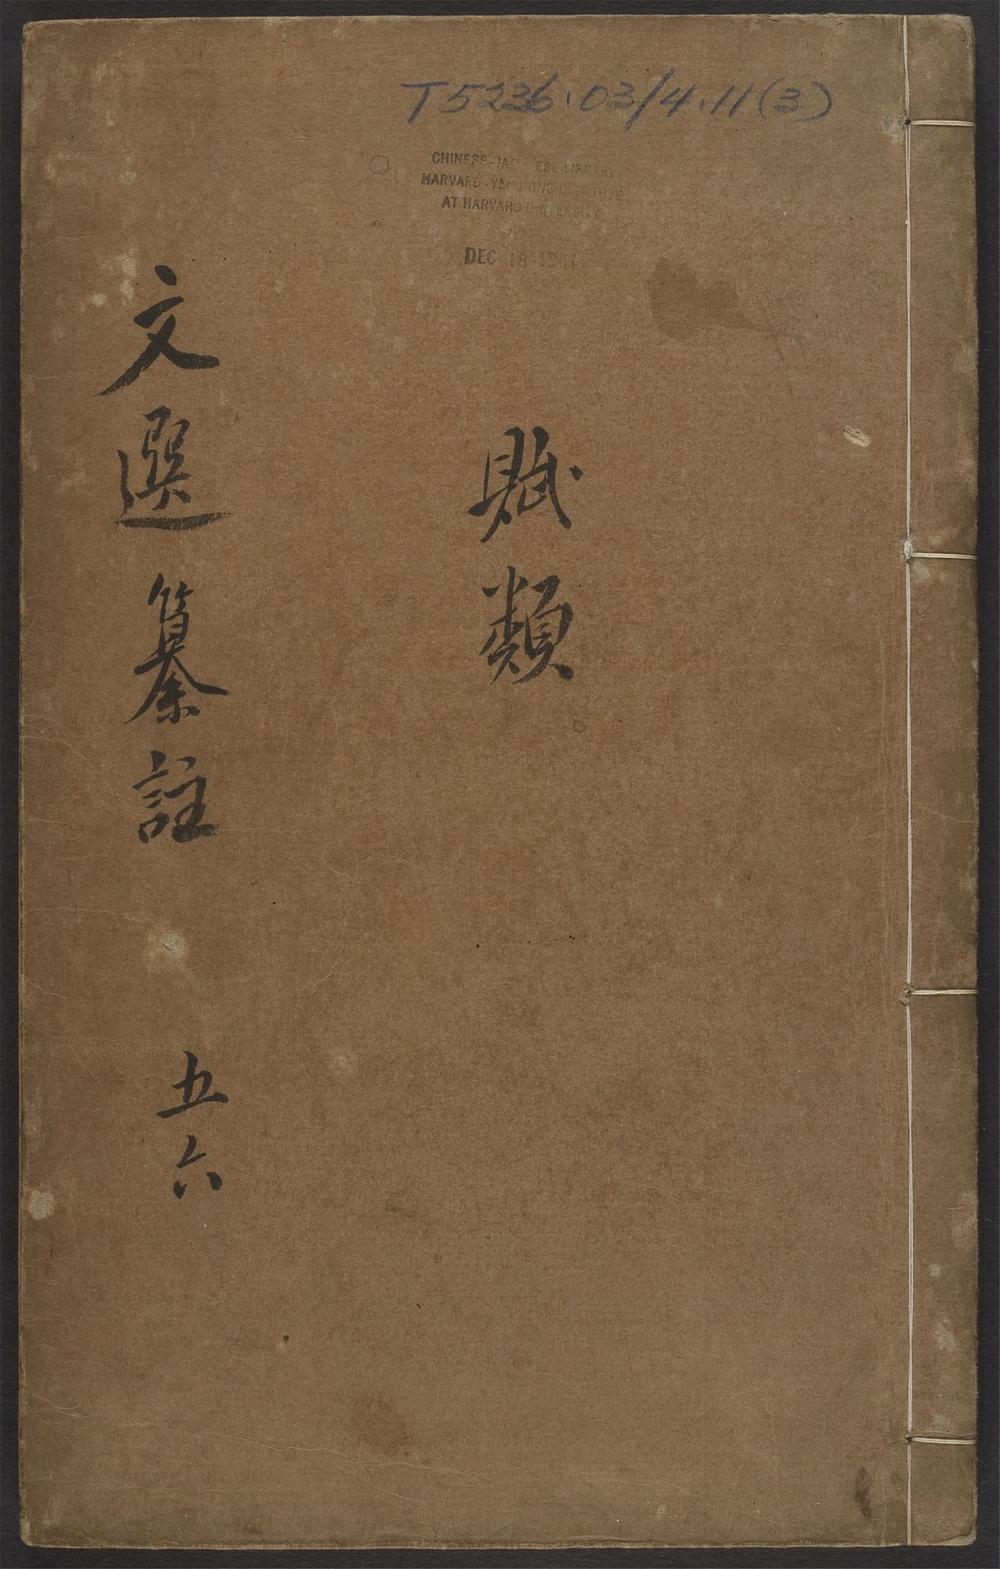 T5236.03/4.11(3)
CHINESE-JAPANESE LIBRARY
HARVARD-YENCHING INSTITUTE
AT HARVARD UNIVERSITY
DEC
賦類
文選纂註 五六